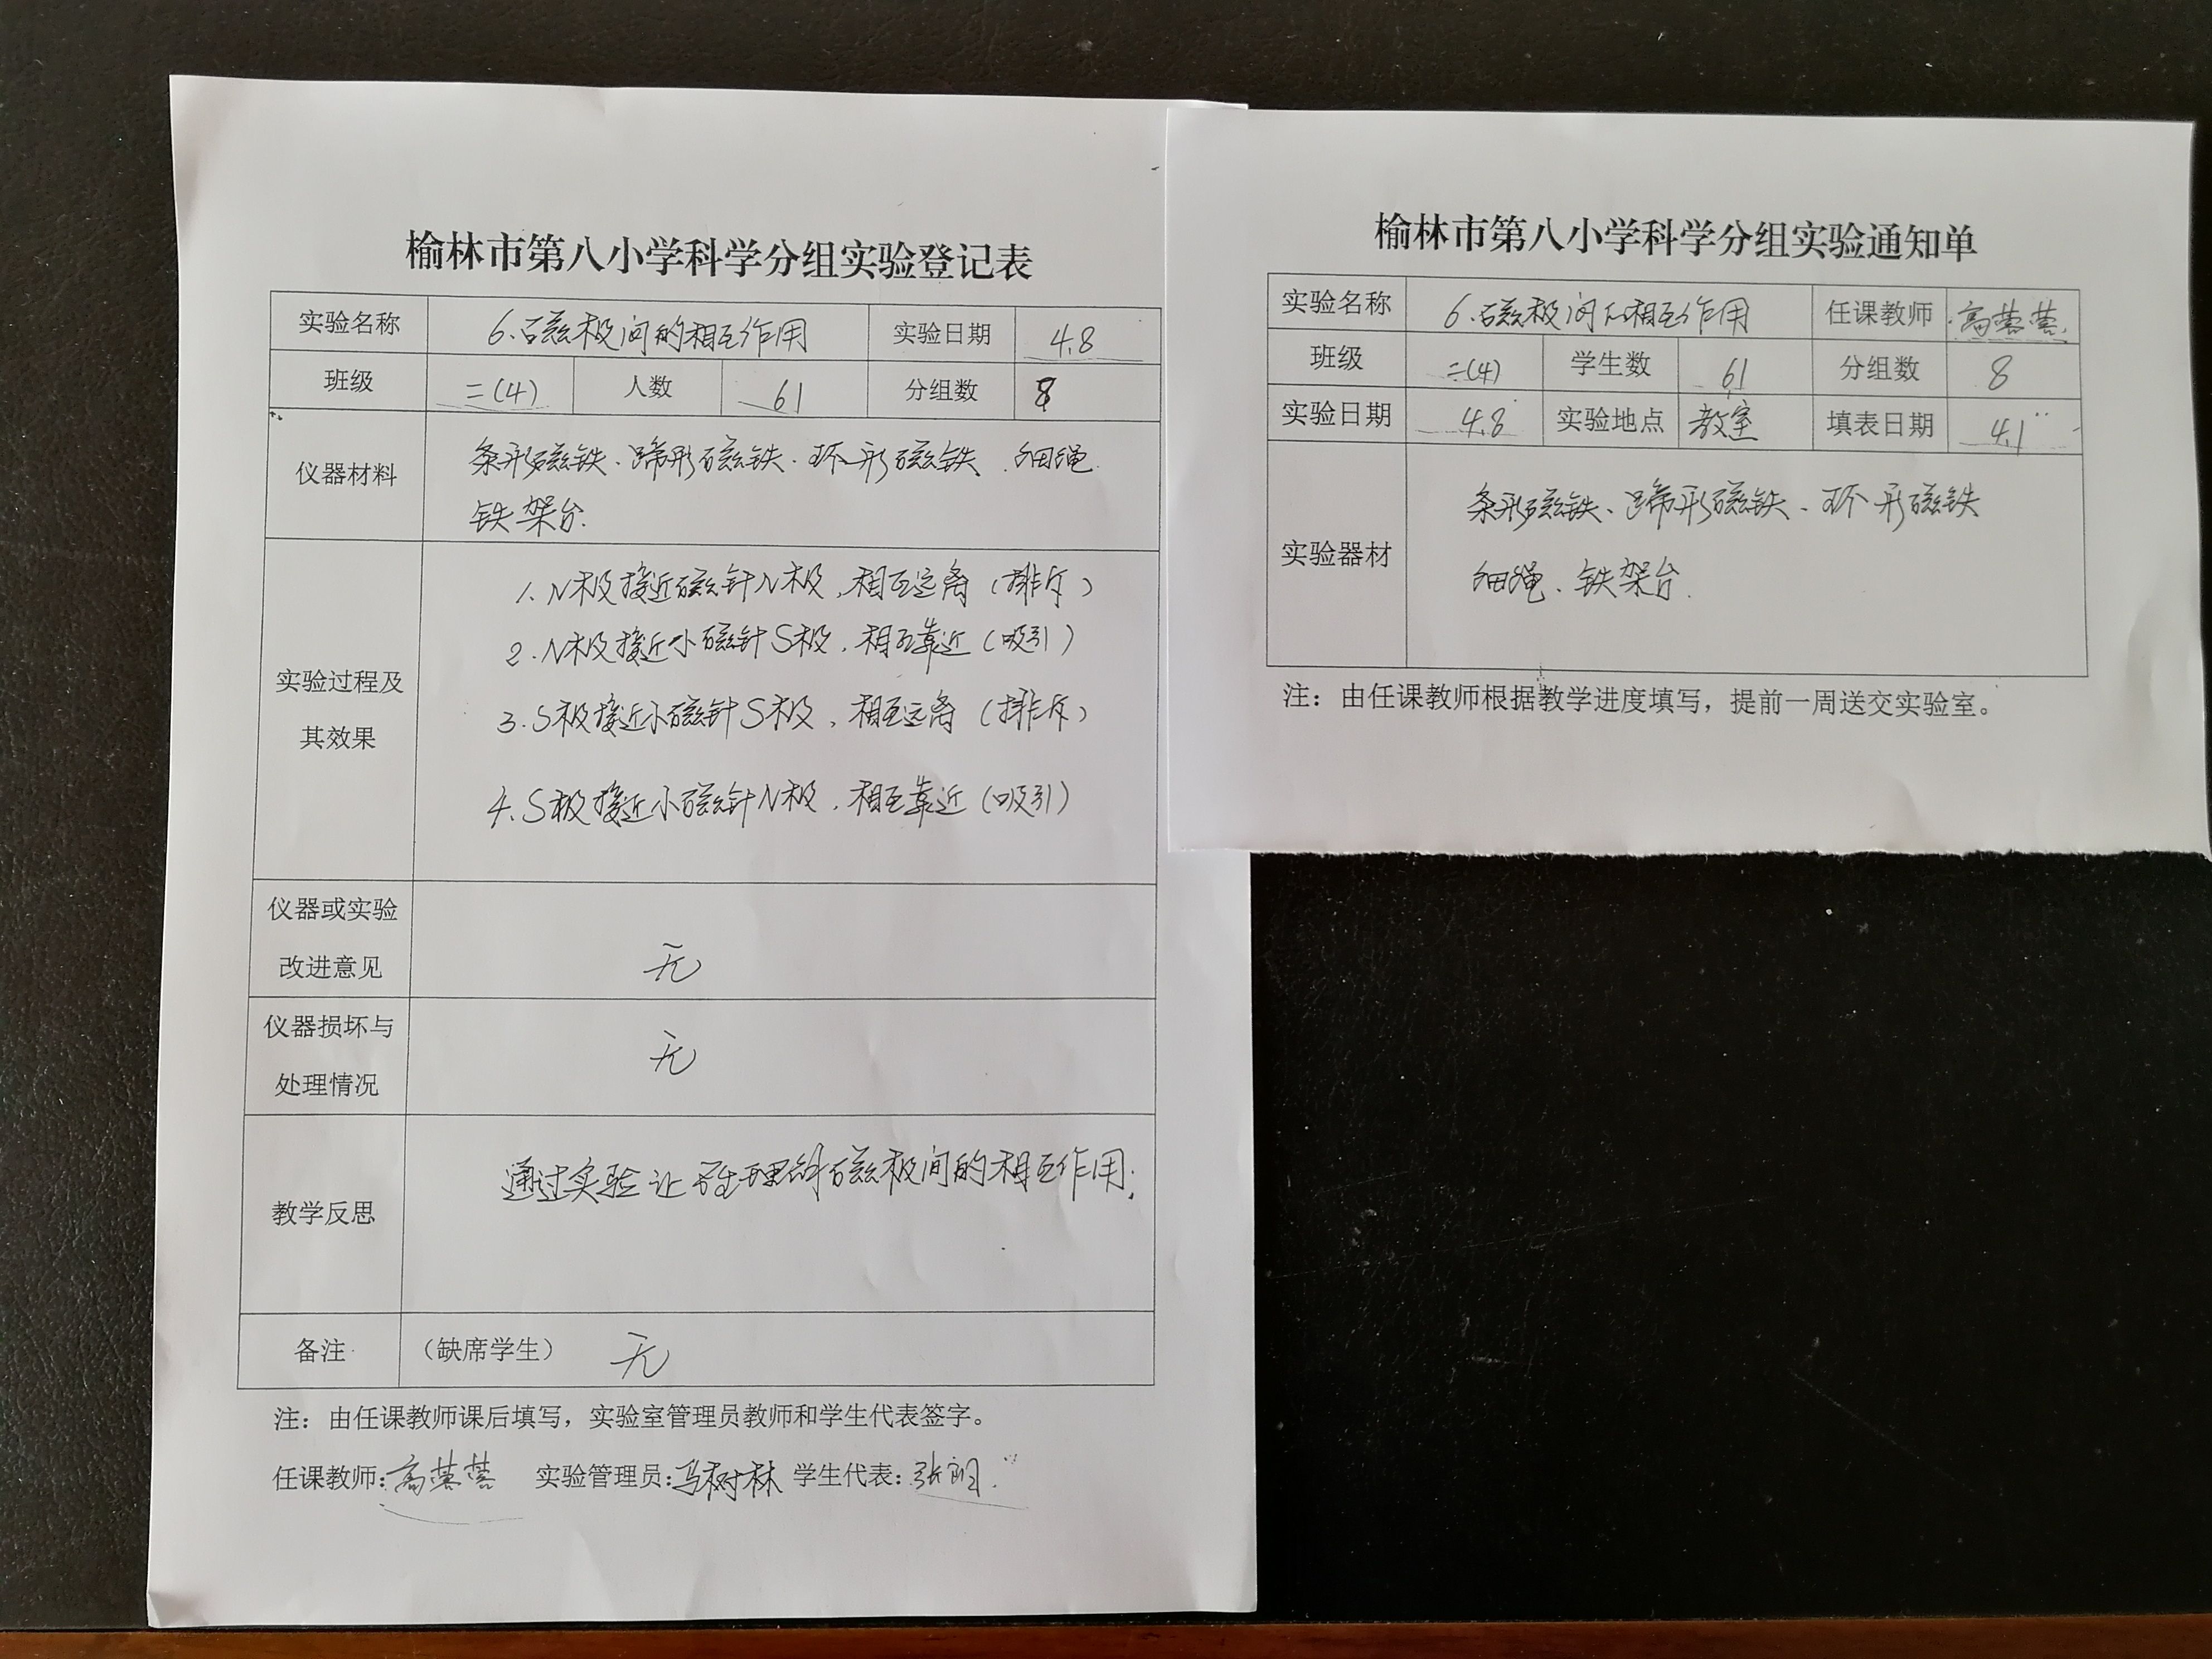 榆林市第八小学科学分组实验登记表
实验名称 6.磁极间的相互作用 实验日期 4.8
班级 二(4) 人数 61 分组数 8
仪器材料 条形磁铁、蹄形磁铁、环形磁铁、细绳
铁架台.
实验过程及其效果
1.N极接近磁针N极,相互远离(排斥)
2.N极接近小磁针S极,相互靠近(吸引)
3.S极接近小磁针S极,相互远离(排斥)
4.S极接近小磁针N极,相互靠近(吸引)
仪器或实验改进意见 无
仪器损坏与处理情况 无
教学反思 通过实验让学生理解磁极间的相互作用.
备注 (缺席学生) 无
注:由任课教师课后填写,实验室管理员教师和学生代表签字。
任课教师: 实验管理员:马树林 学生代表:
榆林市第八小学科学分组实验通知单
实验名称 6.磁极间的相互作用 任课教师
班级 二(4) 学生数 61 分组数 8
实验日期 4.8 实验地点 教室 填表日期 4.1
实验器材 条形磁铁、蹄形磁铁、环形磁铁
细绳、铁架台.
注:由任课教师根据教学进度填写,提前一周送交实验室。